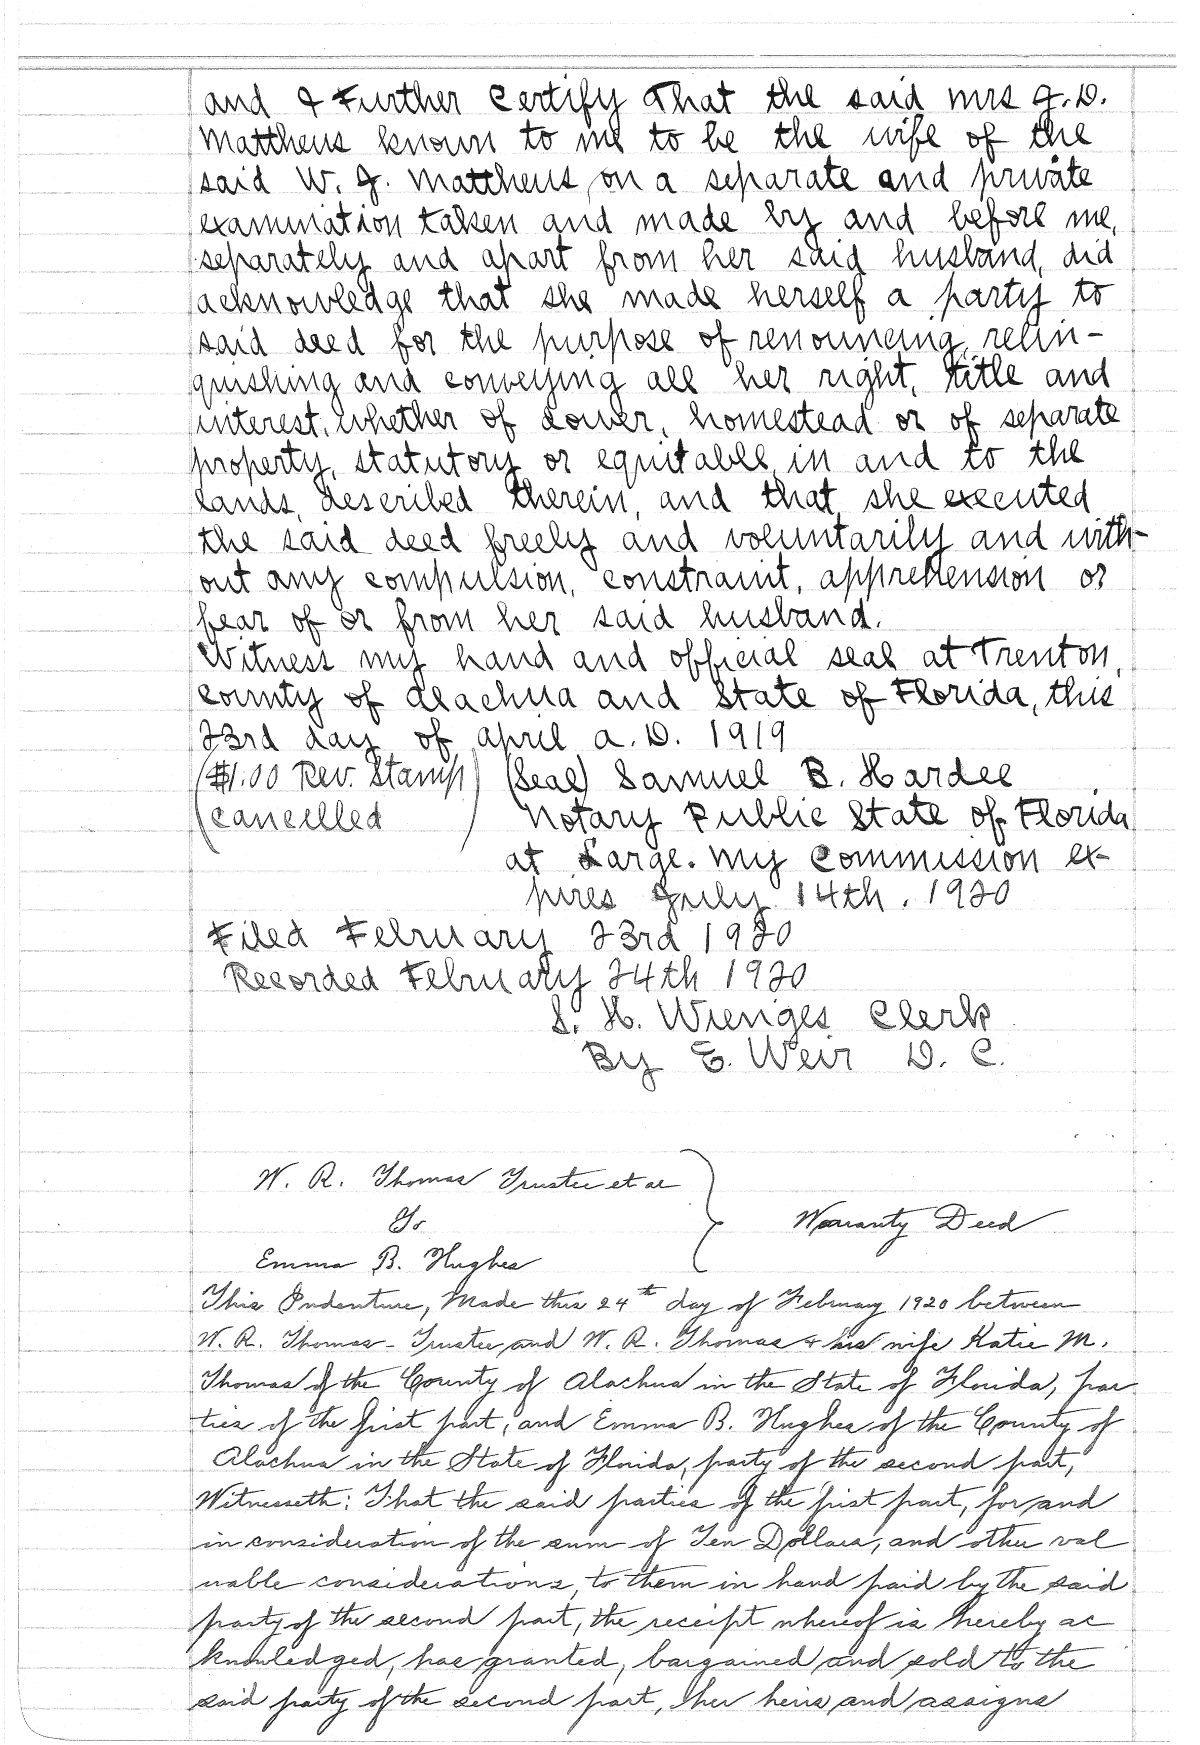 and I Further Certify That the said Mrs J. D.
Mattheus known to me to be the wife of the
said W. J. Mattheus, on a separate and private
examination taken and made by and before me,
separately and apart from her said husband, did
acknowledge that she made herself a party to
said deed for the purpose of renouncing, relin-
quishing and conveying all her right, title and
interest, whether of dower, homestead or of separate
property, statutory or equitable, in and to the
lands, described therein, and that she executed
the said deed freely and voluntarily and with-
out any compulsion, constraint, apprehension or
fear of or from her said husband.
Witness my hand and official seal at Trenton,
County of Alachua and State of Florida, this
23rd day of April A. D. 1919
($1.00 Rev. Stamp) (Seal) Samuel B. Hardee
(cancelled ) Notary Public State of Florida
at Large. My Commission ex-
pires July 14th, 1920
Filed February 23rd 1920
Recorded February 24th 1920
S. H. Wienges Clerk
By E. Weir D. C.
W. R. Thomas Trustee et al
To
Warranty Deed
Emma B. Hughes
This Indenture, Made this 24th day of February 1920 between
W. R. Thomas - Trustee, and W. R. Thomas & his wife Katie M.
Thomas of the County of Alachua in the State of Florida, par
ties of the first part, and Emma B. Hughes of the County of
Alachua in the State of Florida, party of the second part,
Witnesseth: That the said parties of the first part, for and
in consideration of the sum of Ten Dollars, and other val
uable considerations, to them in hand paid by the said
party of the second part, the receipt whereof is hereby ac
knowledged, has granted, bargained and sold to the
said party of the second part, her heirs and assigns